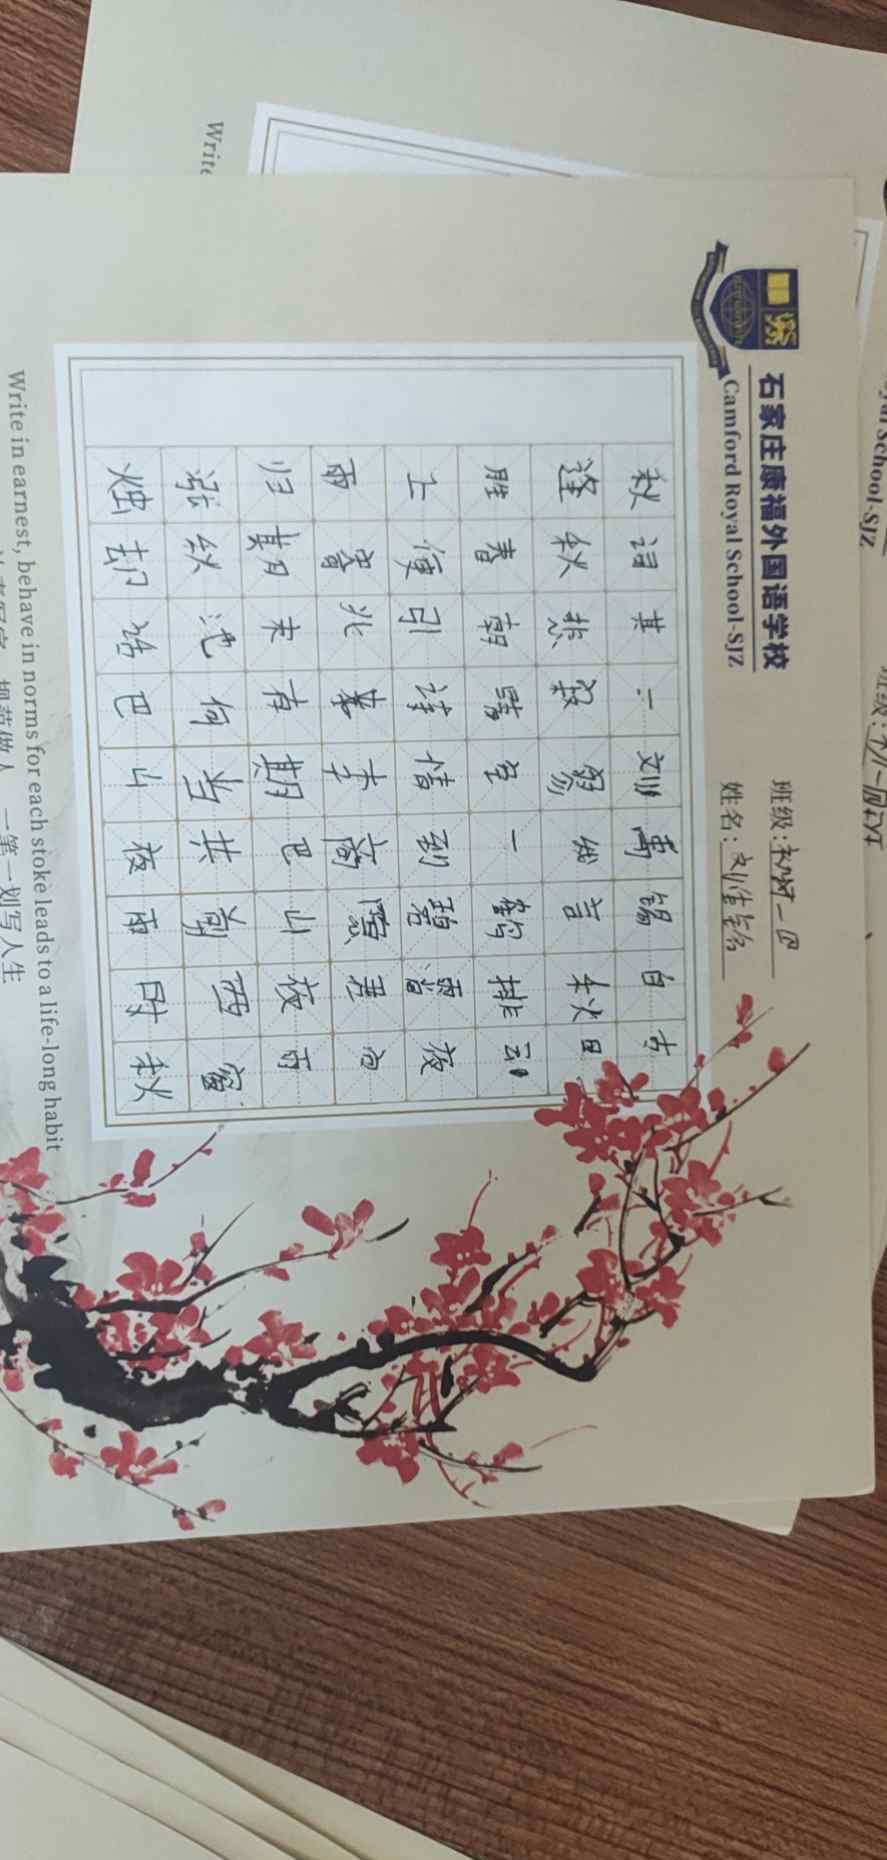 石家庄康福外国语学校
Camford Royal School-SJZ
班级:
姓名:
秋词其一刘禹锡自古
逢秋悲寂寥我言秋日
胜春朝晴空一鹤排云
上便引诗情到碧霄夜
雨寄北李商隐君问
归期未有期巴山夜雨
涨秋池何当共剪西窗
烛却话巴山夜雨时秋
Write in earnest, behave in norms for each stoke leads to a life-long habit
规范做人 一笔一划写人生
Write
班级: